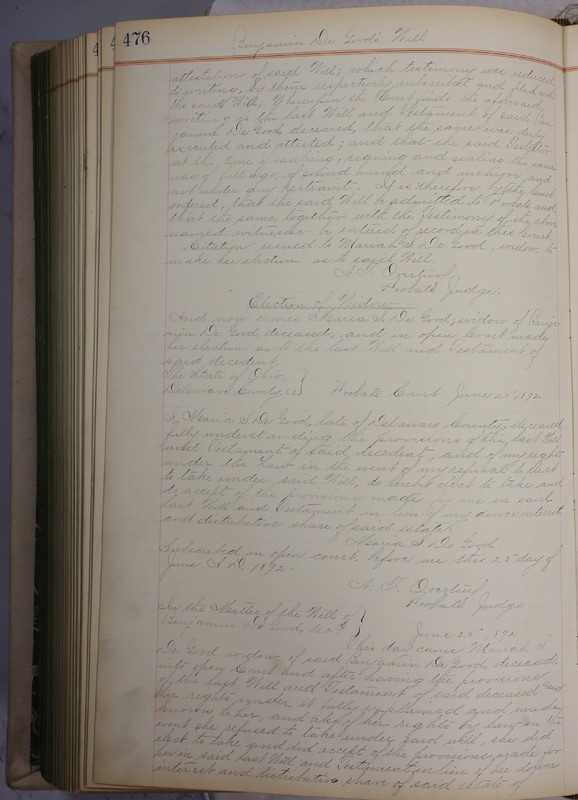 476
Benjamin De Good's Will
attestation of said Will; which testimony was reduced
to writing, by them respectively subscribed and filed with
the said Will, Whereupon the Court finds the aforesaid
writing is the last Will and Testament of said Ben-
jamin De Good deceased, that the same was duly
executed and attested; and that the said Testator
at the time of making, signing and sealing the same
was of full age, of sound mind and memory, and
not under any restraint. It is therefore by the Court
ordered, that the said Will be admitted to Probate and
that the same together with the testimony of the above
named witnesses be entered of record in this Court
Citation issued to Mariah S. De Good, widow to
make her election as to said Will
Probate Judge.
Election of Widow
And now comes Maria S. De Good, widow of Benja-
min De Good deceased, and in open Court made
her election as to the last Will and Testament of
said decedent.
The State of Ohio,
Delaware County, ss } Probate Court June 25" 1892
I, Maria S. De Good, late of Delaware County, deceased
fully understanding the provisions of the last Will
and Testament of said decedent, and of my rights
under the Law in the event of my refusal to elect
to take under said Will, do hereby elect to take and
do accept of the provisions made for me in said
last Will and Testament in lieu of my dower interest
and distributive share of said estate.
Maria S. De Good.
Subscribed in open court before me this 25" day of
June A.D. 1892-
Probate Judge
In the Matter of the Will of
Benjamin De Good, dec'd } June 25", 1892
This day came Mariah S.
De Good widow of said Benjamin De Good, deceased,
into open Court and after having the provisions
of the last Will and Testament of said deceased and
her rights under it fully explained and made
known to her, and also of her rights by law in the
event she refused to take under said will, she did
elect to take and did accept of the provisions made for
her in said last Will and Testament, in lieu of her dower
interest and distributive share of said estate of